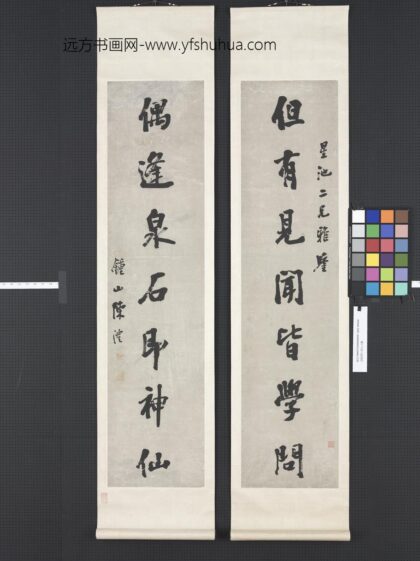 远方书画网-www.yfshuhua.com
星池二兄雅鉴
但有見聞皆學問
偶逢泉石即神仙
鍾山陳澧